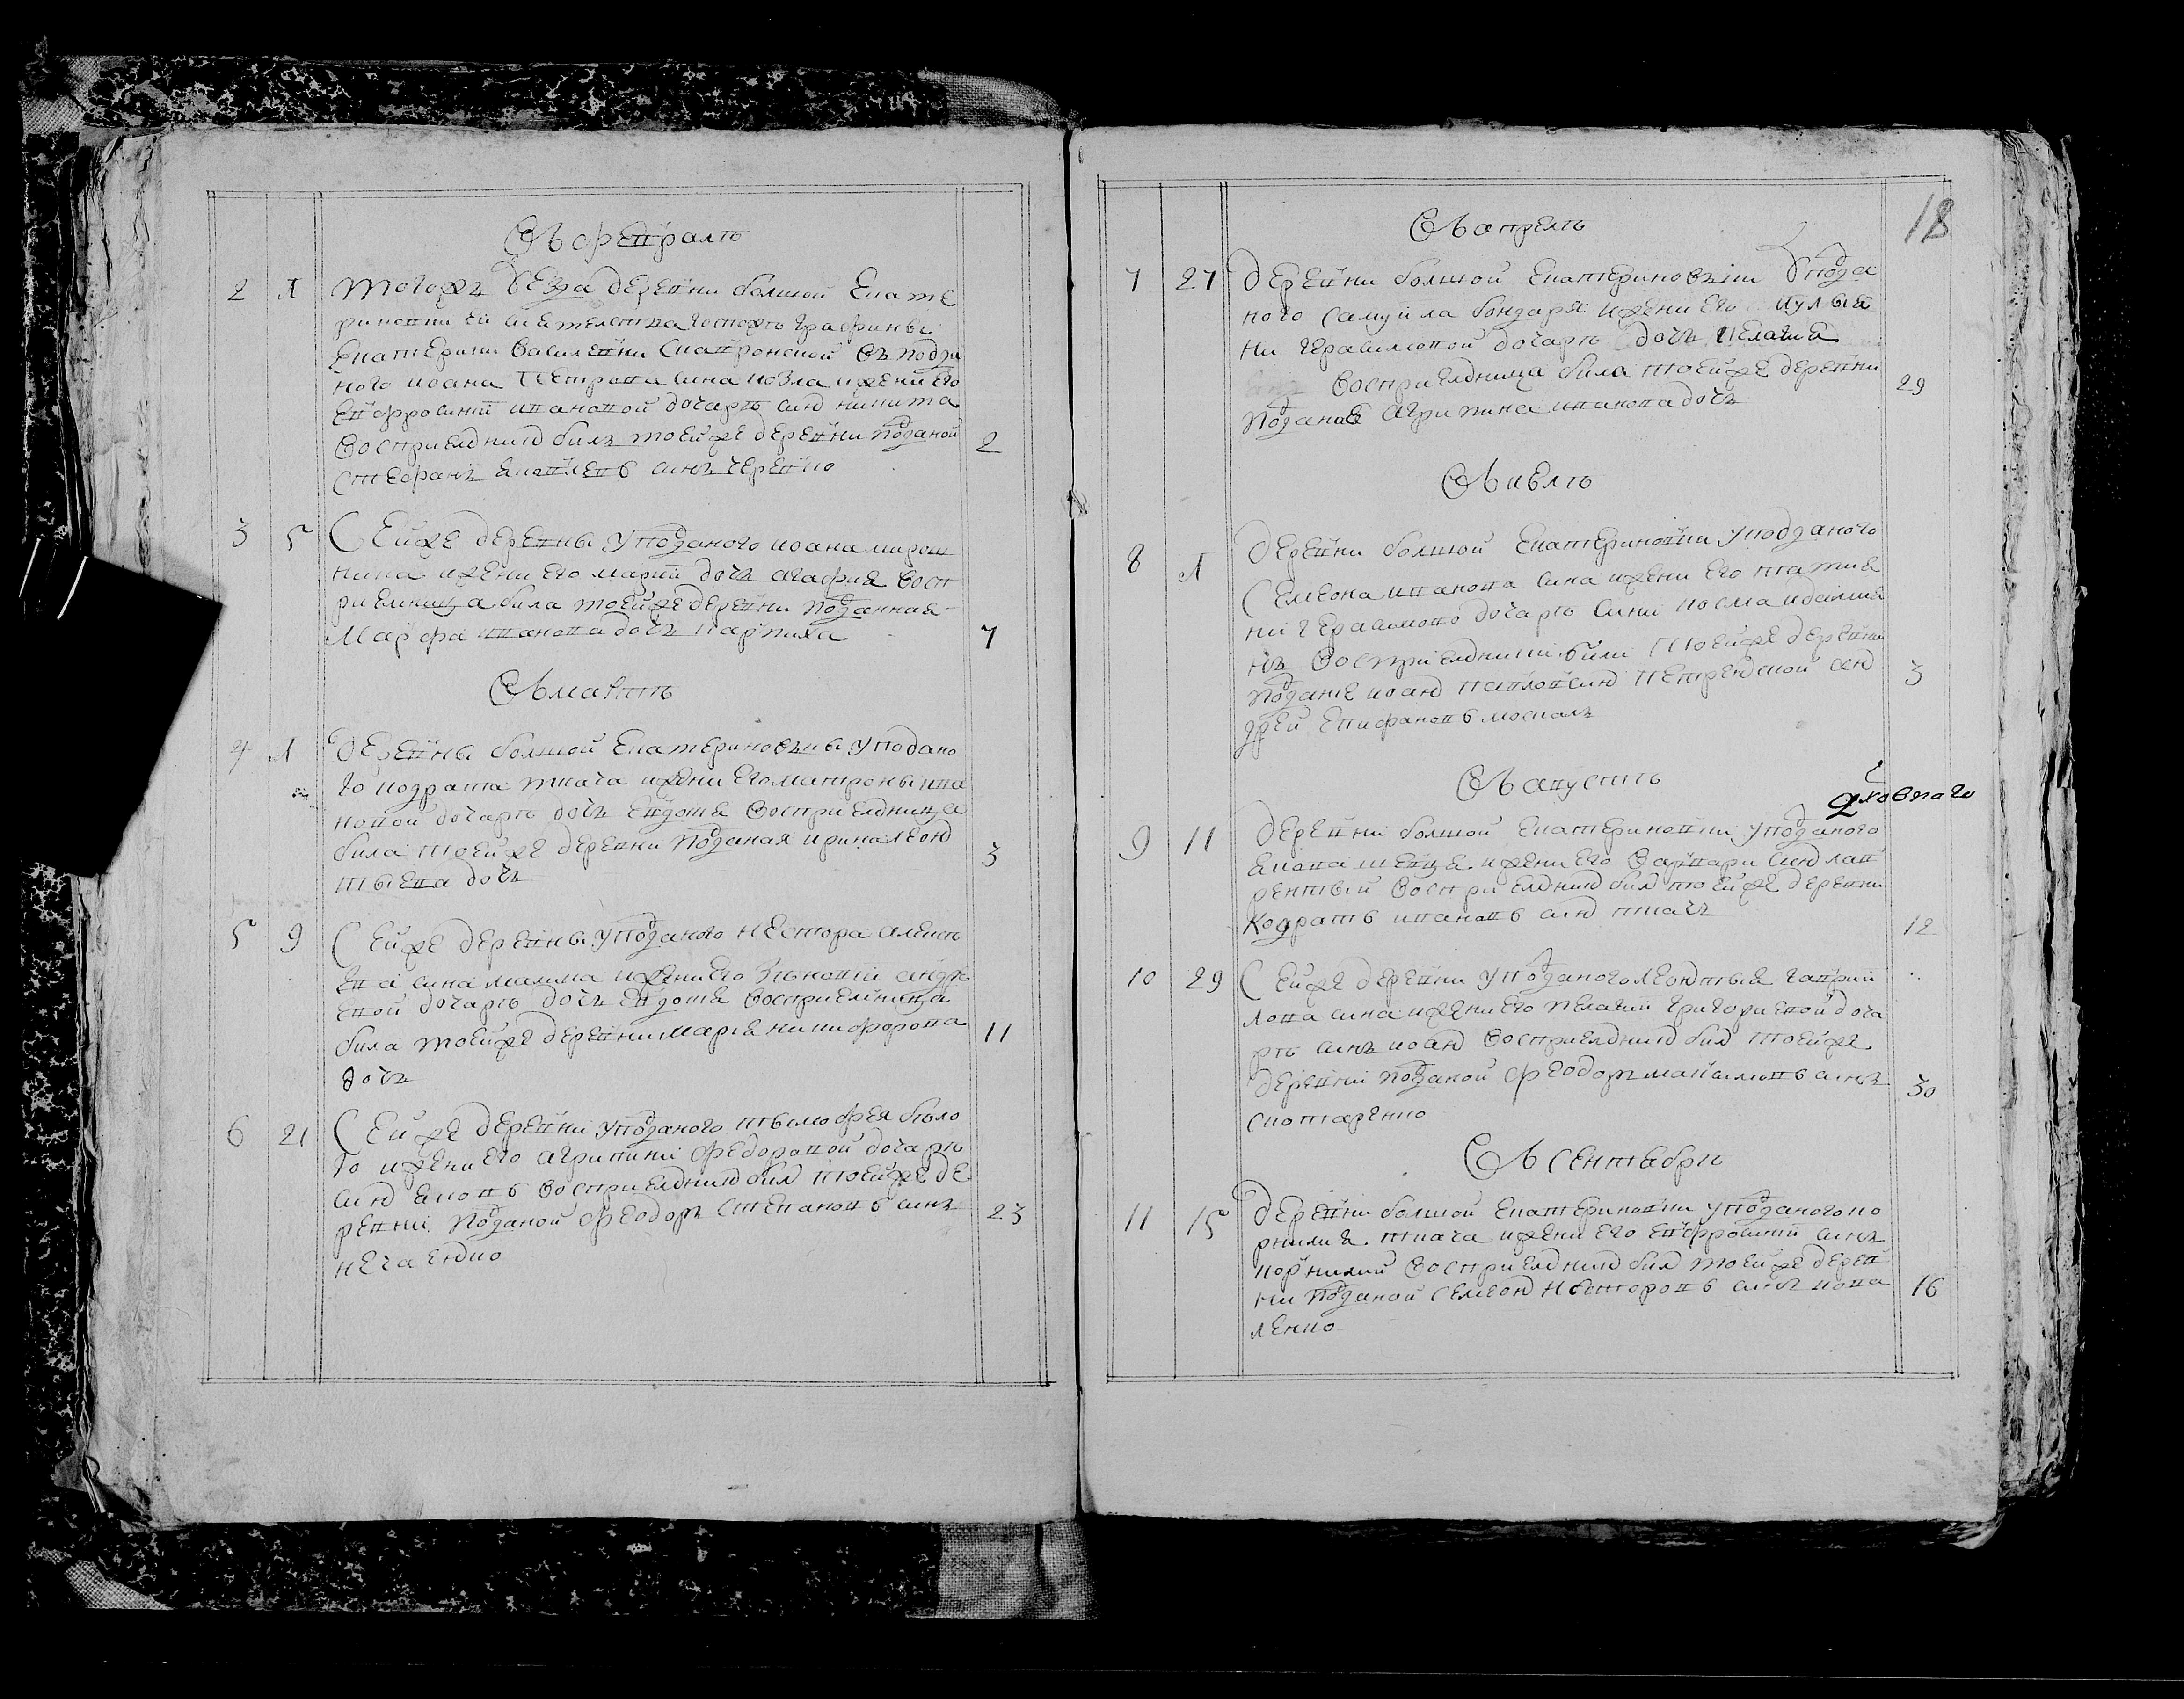 Въ февралѣ
2 1 Тогожъ уезда деревни болшой Екате
риновки Ея сиятелства госпожѣ графинѣ
Екатерини Василевни Скавронской въ подда
ного иоана Петрова сина козла и жени его
Евфросинїи ивановой дочарѣ синъ никита
восприемникъ билъ тоей же деревни поданой
Стефанъ яковлевъ синъ черевко 2
3 5 Сей же деревны у поданого иоана мирош
ника и жени его марїи дочъ агафия восп
риемница била тоей же деревни поданная
Марфа иванова дочъ карпиха 7
Въ мартѣ
4 1 Деревны болшой Екатериновъки у подано
го кодрата ткача и жени его матроны ива
новой дочарѣ дочъ Евдокия восприемница
била тоей же деревни поданая ирина леон
тьева дочъ 3
5 9 Сей же деревны у поданого нестора алексѣ
ева сина малика и жени его зѣновїи андре
евой дочарѣ дочъ Евдокия восприемница
била тоей же деревни мария никифорова
дочъ 11
6 21 Сей же деревни у поданого тимофея бѣло
го и жени его агрипини федоравой дочарѣ
синъ яковъ восприемникъ билъ тоей же де
ревни поданой феодоръ Степановъ синъ
нечаенко 23
18
Въ апрелѣ
7 27 Деревни болшой Екатериновъки у пода
ного Самуйла бондаря и жени его акулыи
ни герасимовой дочарѣ дочъ пелагия
восприемница била тоей же деревни
поданая агрипина иванова дочъ 29
Въ июлѣ
8 1 Деревни болшой Екатериновки у подданого
Семеона иванова сина и жени его татия
ни герасимово дочарѣ сини косма и дамия
нъ восприемники били тоей же деревни
подание иоанъ павловъ синъ петренской анд
рей епифановъ москаль 3
Въ августѣ
духовнаго
9 11 Деревни болшой Екатериновки у поданого
якова швеца и жени его варвари синъ лав
рентий восприемникъ билъ тоей же деревни
Кодратъ ивановъ синъ ткачъ 12
10 29 Сей же деревни у поданого леонтия гаврии
лова сина и жени его пелагии григориевой доча
рѣ синъ иоанъ восприемникъ билъ тоей же
деревни поданой феодоръ максимовъ синъ
скотаренко 30
Въ Сентябрѣ
11 15 Деревни болшой Екатериновки у поданого ко
рнилия ткача и жени его Евфросинїи синъ
корнилий восприемникъ билъ тоей же дерев
ни поданой Семеонъ несторовъ синъ кова
ленко 16